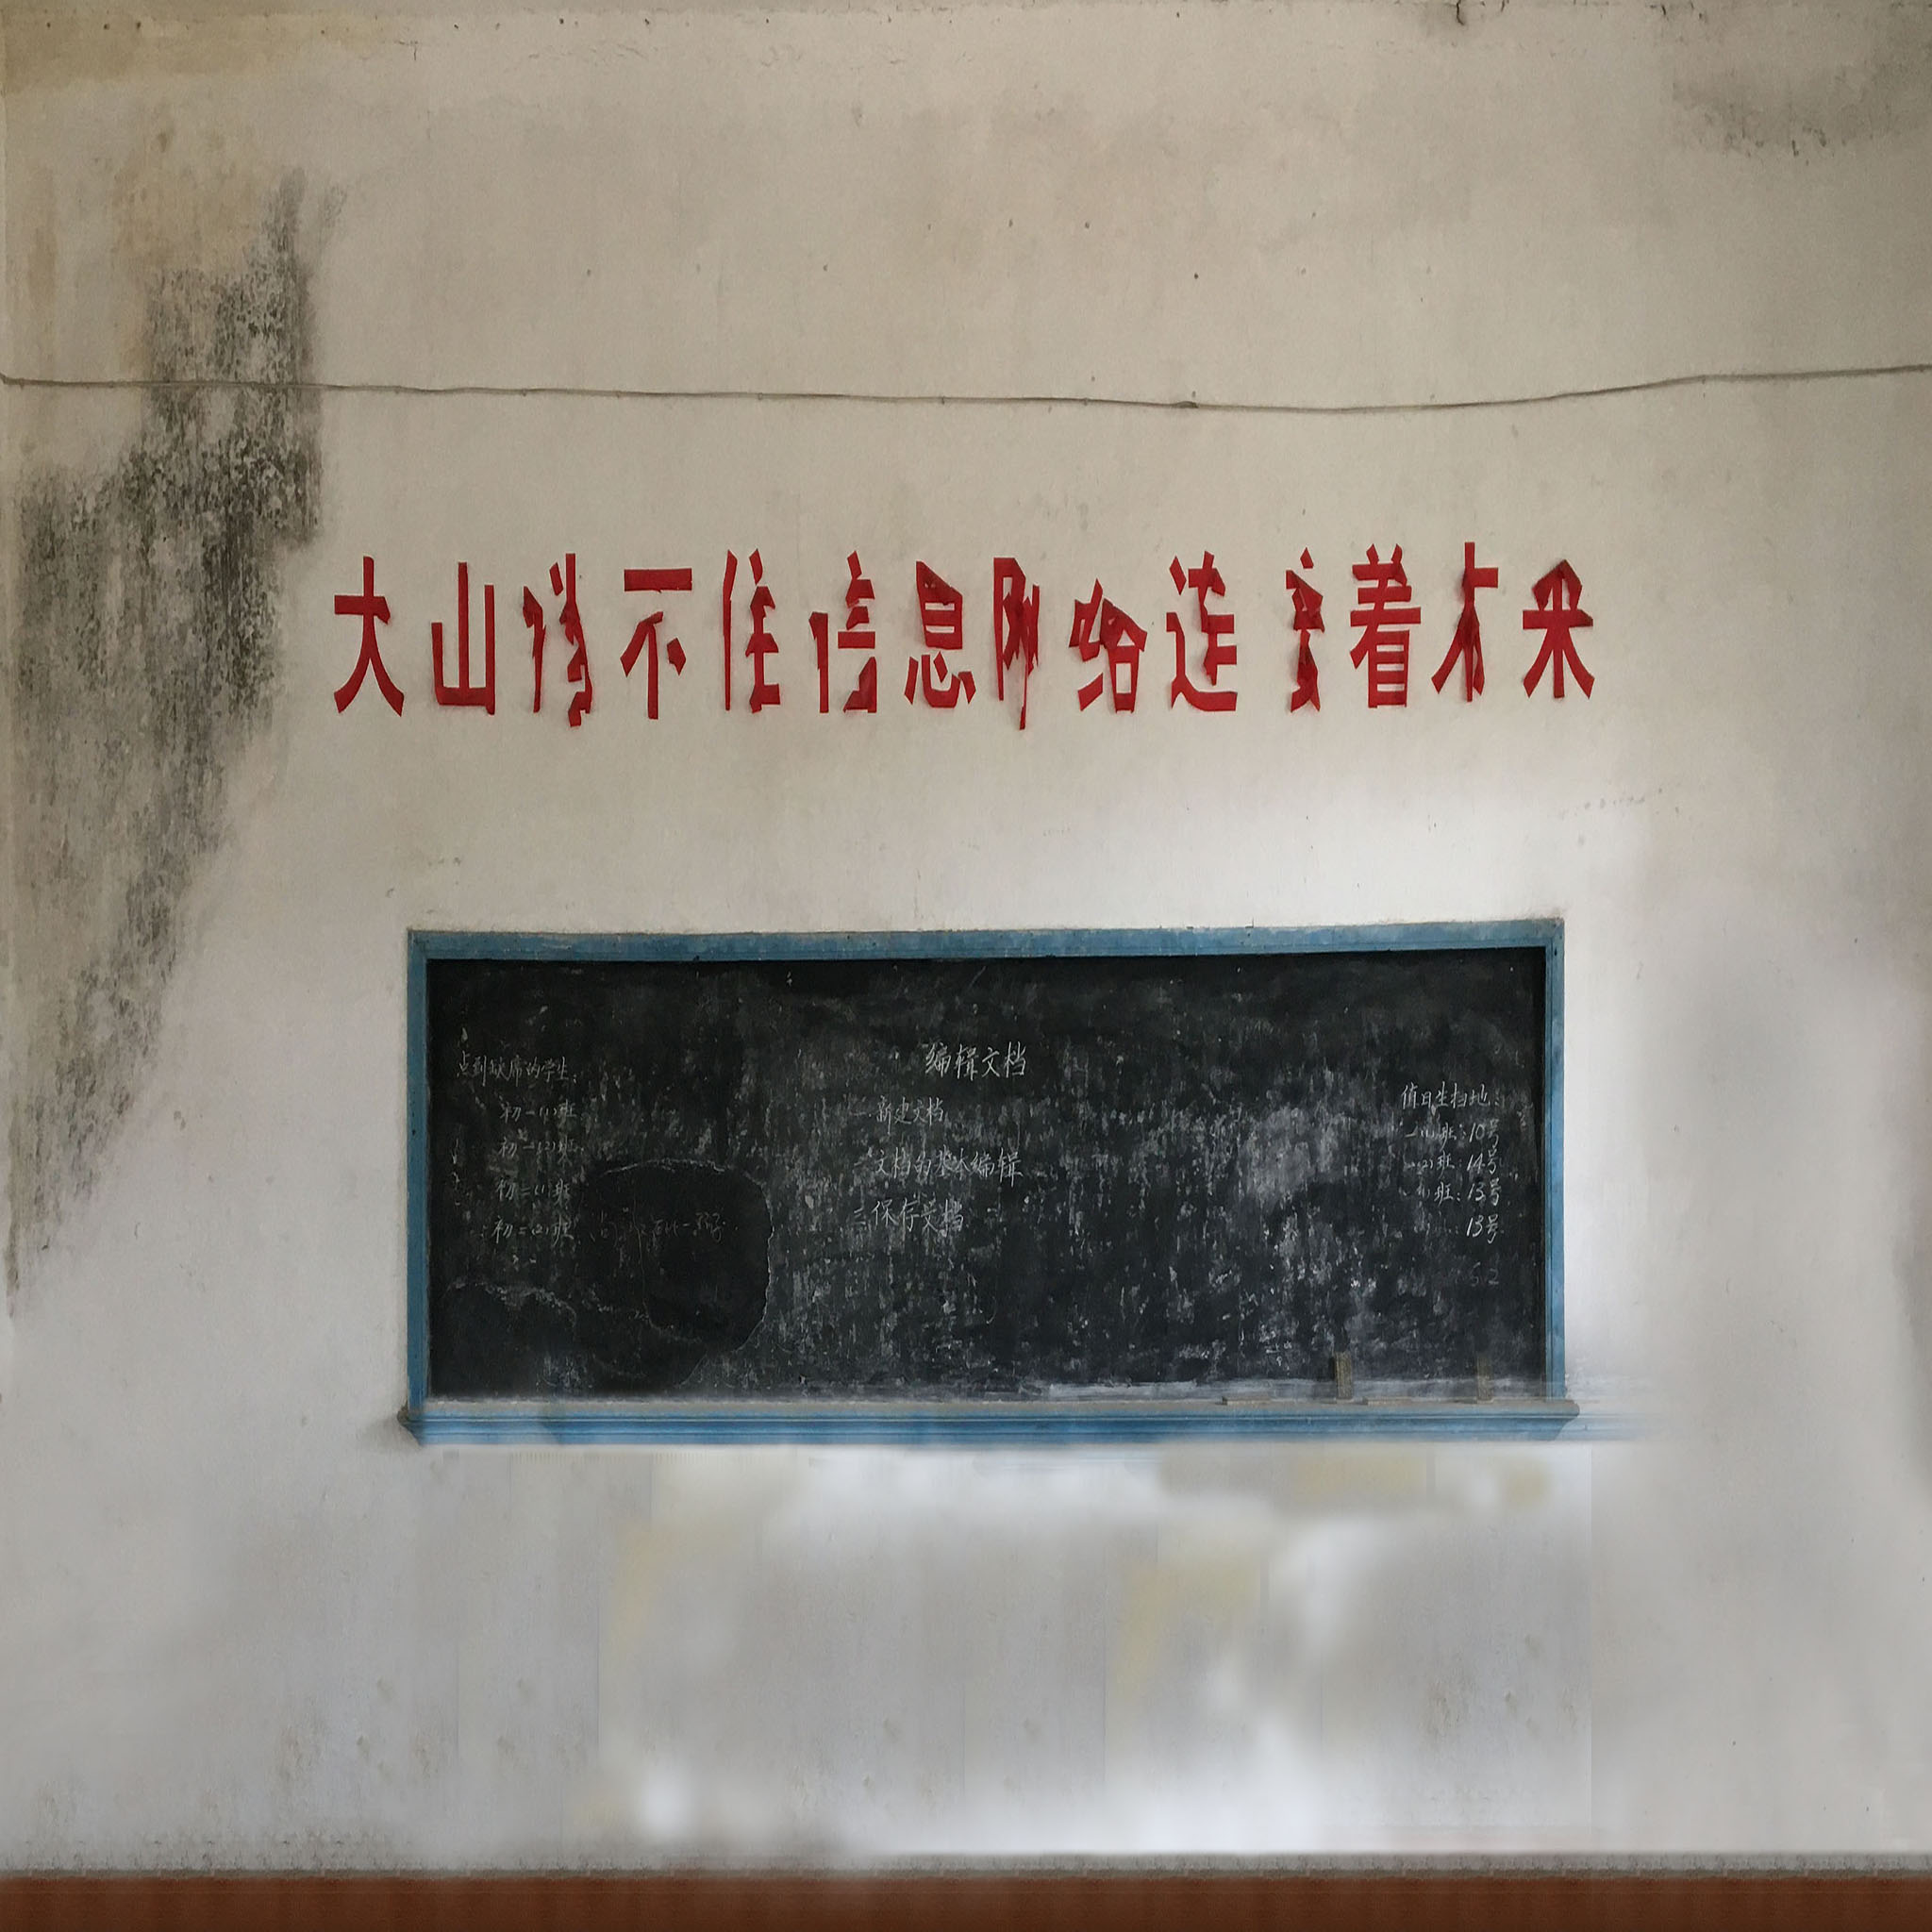 大山 不住信息 连 着 来
编辑文档
点到缺席的学生:
初一(1)班
初一(2)班
初二(1)班
初二(2)班
一.新建文档
二.文档的基本编辑
三.保存文档
值日生扫地:
一(1)班:10号
(2)班:14号
班:13号
13号